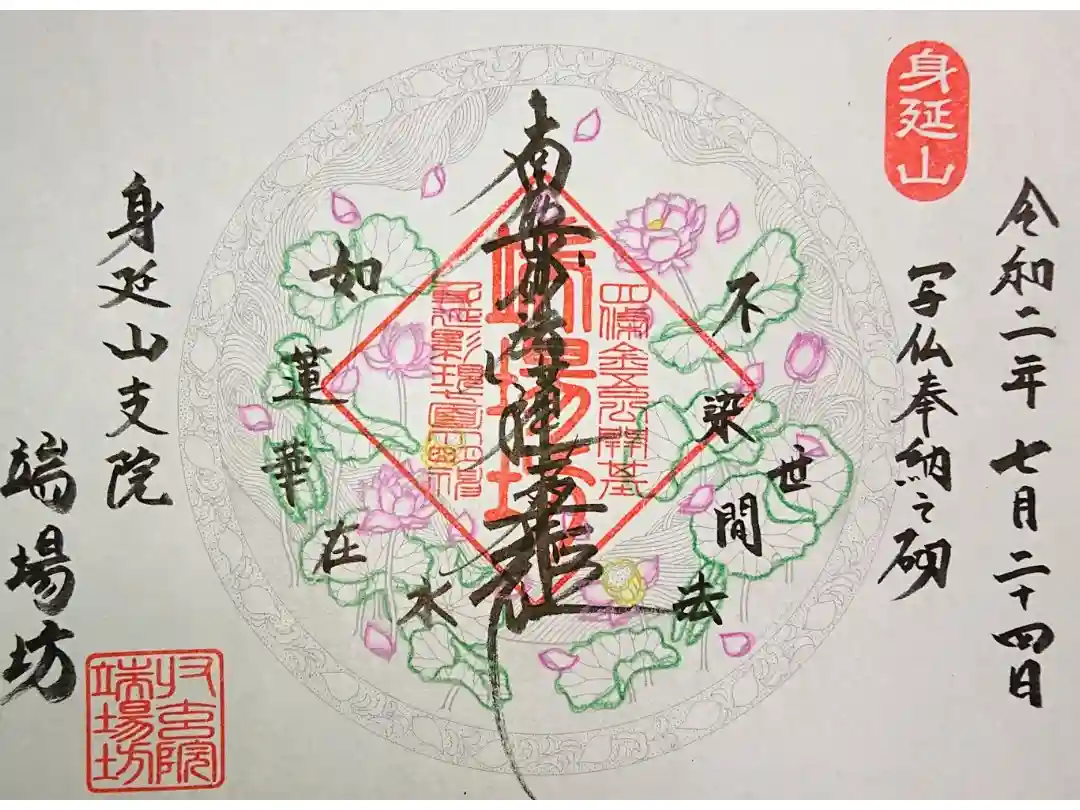 身延山
令和二年 七月二十四日
写仏奉納之砌
不染世間法
四條金吾公開基
南無妙法蓮華経
端場坊
如蓮華在水
身延山支院
端場坊
端場坊